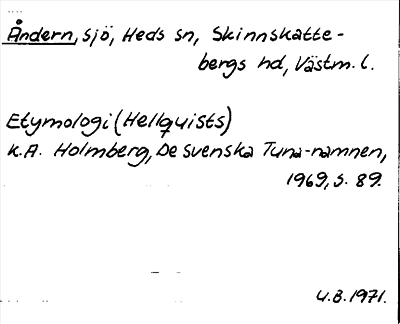 Åndern, sjö, Heds sn, Skinnskatte-
bergs hd, Västm. l.
Etymologi (Hellquists)
K.A. Holmberg, De svenska Tuna-namnen,
1969, s. 89.
U.B. 1971.